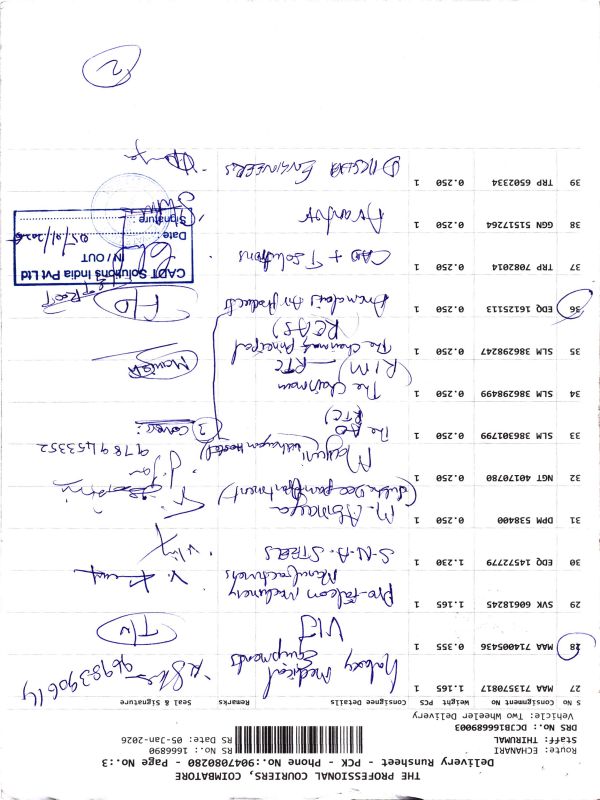 THE PROFESSIONAL COURIERS, COIMBATORE
Delivery Runsheet - PCK - Phone No.:9047080280 - Page No.:3
Route: ECHANARI
Staff: THIRUMAL
DRS No.: DCJB1666689003
Vehicle: Two Wheeler Delivery
RS No.: 1666890
RS Date: 05-Jan-2026
S No Consignment No Weight PCS Consignee Details Remarks Seal & Signature
27 MAA 713570817 1.165 1 Galaxy Medical Equipments
28 MAA 714005436 0.355 1 VIJ
29 SVK 60618245 1.165 1 Pro-Falcon Machinery Manufacturers
30 EDQ 14572779 1.230 1 S.N.A. STEELS
31 DPM 538400 0.250 1 M.
32 NGT 40170780 0.250 1 Mayuri
9789453352
33 SLM 386381799 0.250 1 The AO
RTC)
3 Covers
34 SLM 386298499 0.250 1 The Chairman
RIM) RTC
35 SLM 386298247 0.250 1 The Chairman, Principal
RCAS)
36 EDQ 1625113 0.250 1 Air Products
37 TRP 7082014 0.250 1 CAD + T Solutions
CADT Solutions India Pvt Ltd
IN / OUT
Date :
Signature :
38 GGN 51517264 0.250 1 Avantor
39 TRP 6502334 0.250 1 ENGINEERS
2